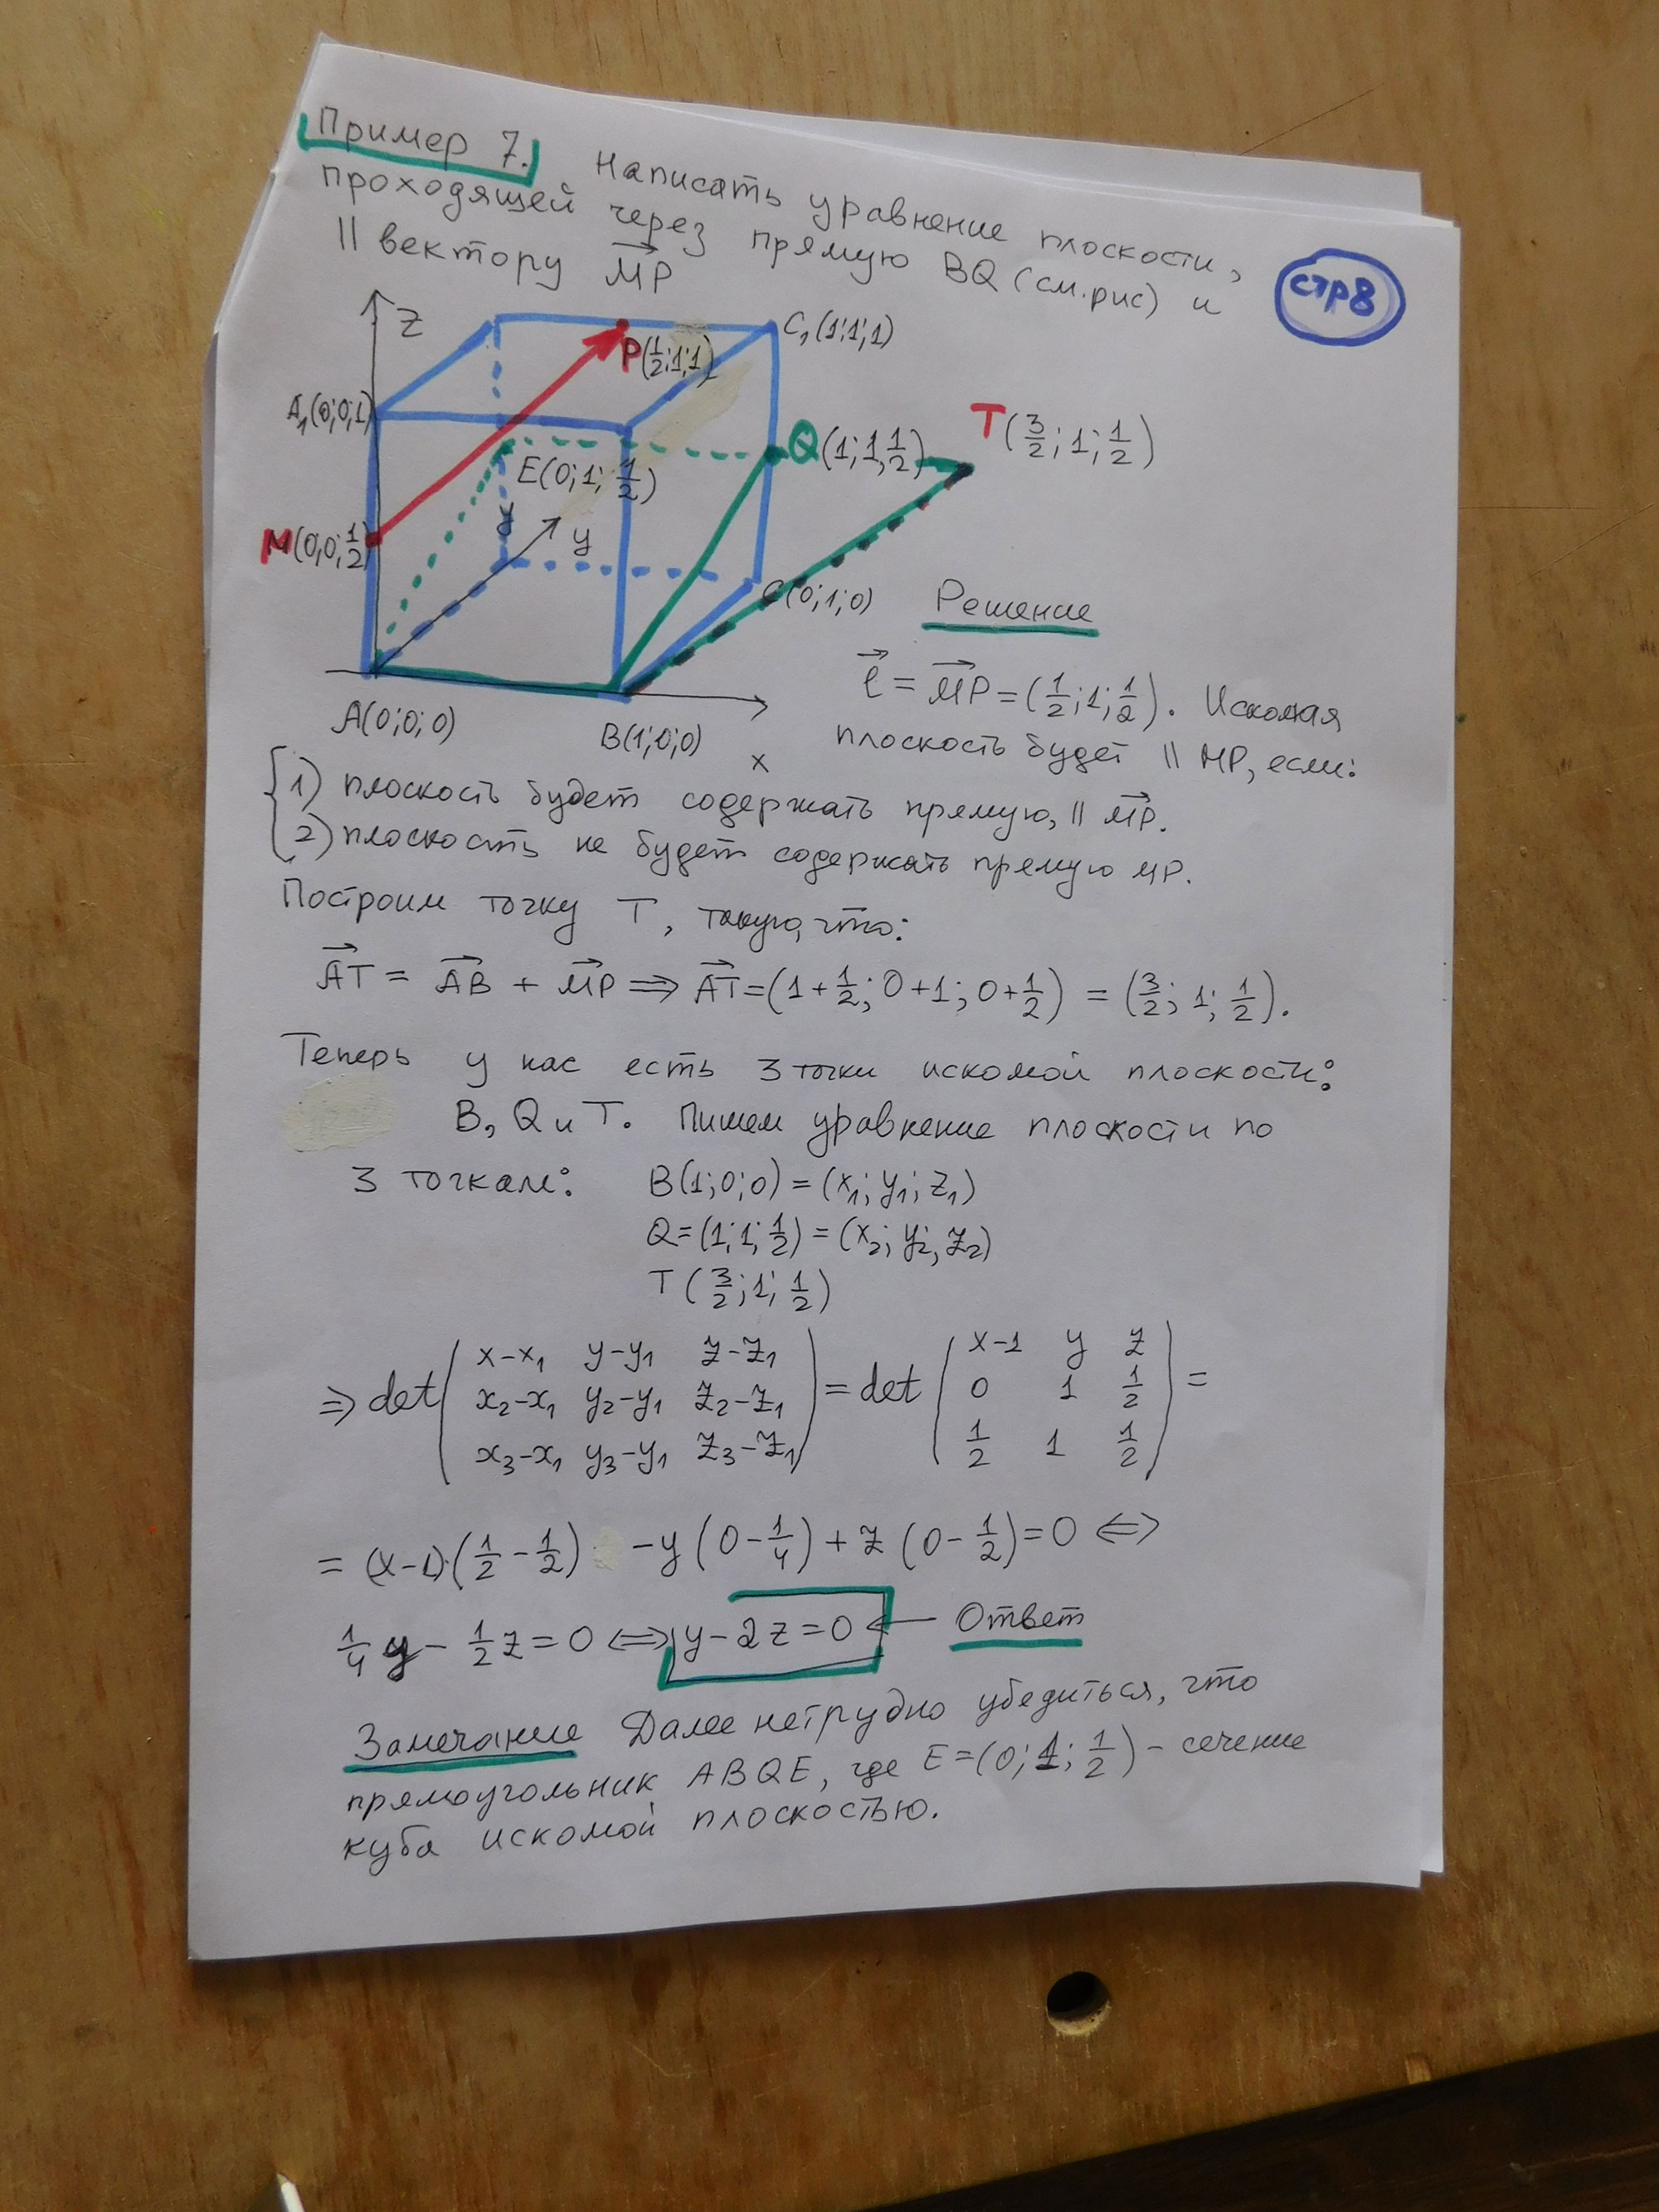 Пример 7. Написать уравнение плоскости,
проходящей через прямую BQ (см. рис) и
|| вектору MP
стр 8
z
C₁(1;1;1)
P(½;1;1)
A₁(0;0;1)
T(3/2; 1; ½)
Q(1;1,½)
E(0;1;½)
y
y
M(0;0;½)
C(0;1;0)
Решение
A(0;0;0)
B(1;0;0)
x
ℓ = MP = (½; 1; ½). Искомая
плоскость будет || MP, если:
1) плоскость будет содержать прямую, || MP.
2) плоскость не будет содержать прямую MP.
Построим точку T, такую, что:
AT = AB + MP ⇒ AT = (1+½; 0+1; 0+½) = (3/2; 1; ½).
Теперь у нас есть 3 точки искомой плоскости:
B, Q и T. Пишем уравнение плоскости по
3 точкам: B(1;0;0) = (x₁; y₁; z₁)
Q = (1;1;½) = (x₂; y₂; z₂)
T(3/2; 1; ½)
⇒ det( x-x₁ y-y₁ z-z₁ ) = det( x-1 y z ) =
x₂-x₁ y₂-y₁ z₂-z₁ 0 1 ½
x₃-x₁ y₃-y₁ z₃-z₁ ½ 1 ½
= (x-1)·(½-½) -y(0-¼) + z(0-½) = 0 ⇔
¼y - ½z = 0 ⇔ y-2z=0 ← Ответ
Замечание Далее нетрудно убедиться, что
прямоугольник ABQE, где E=(0;1;½) - сечение
куба искомой плоскостью.